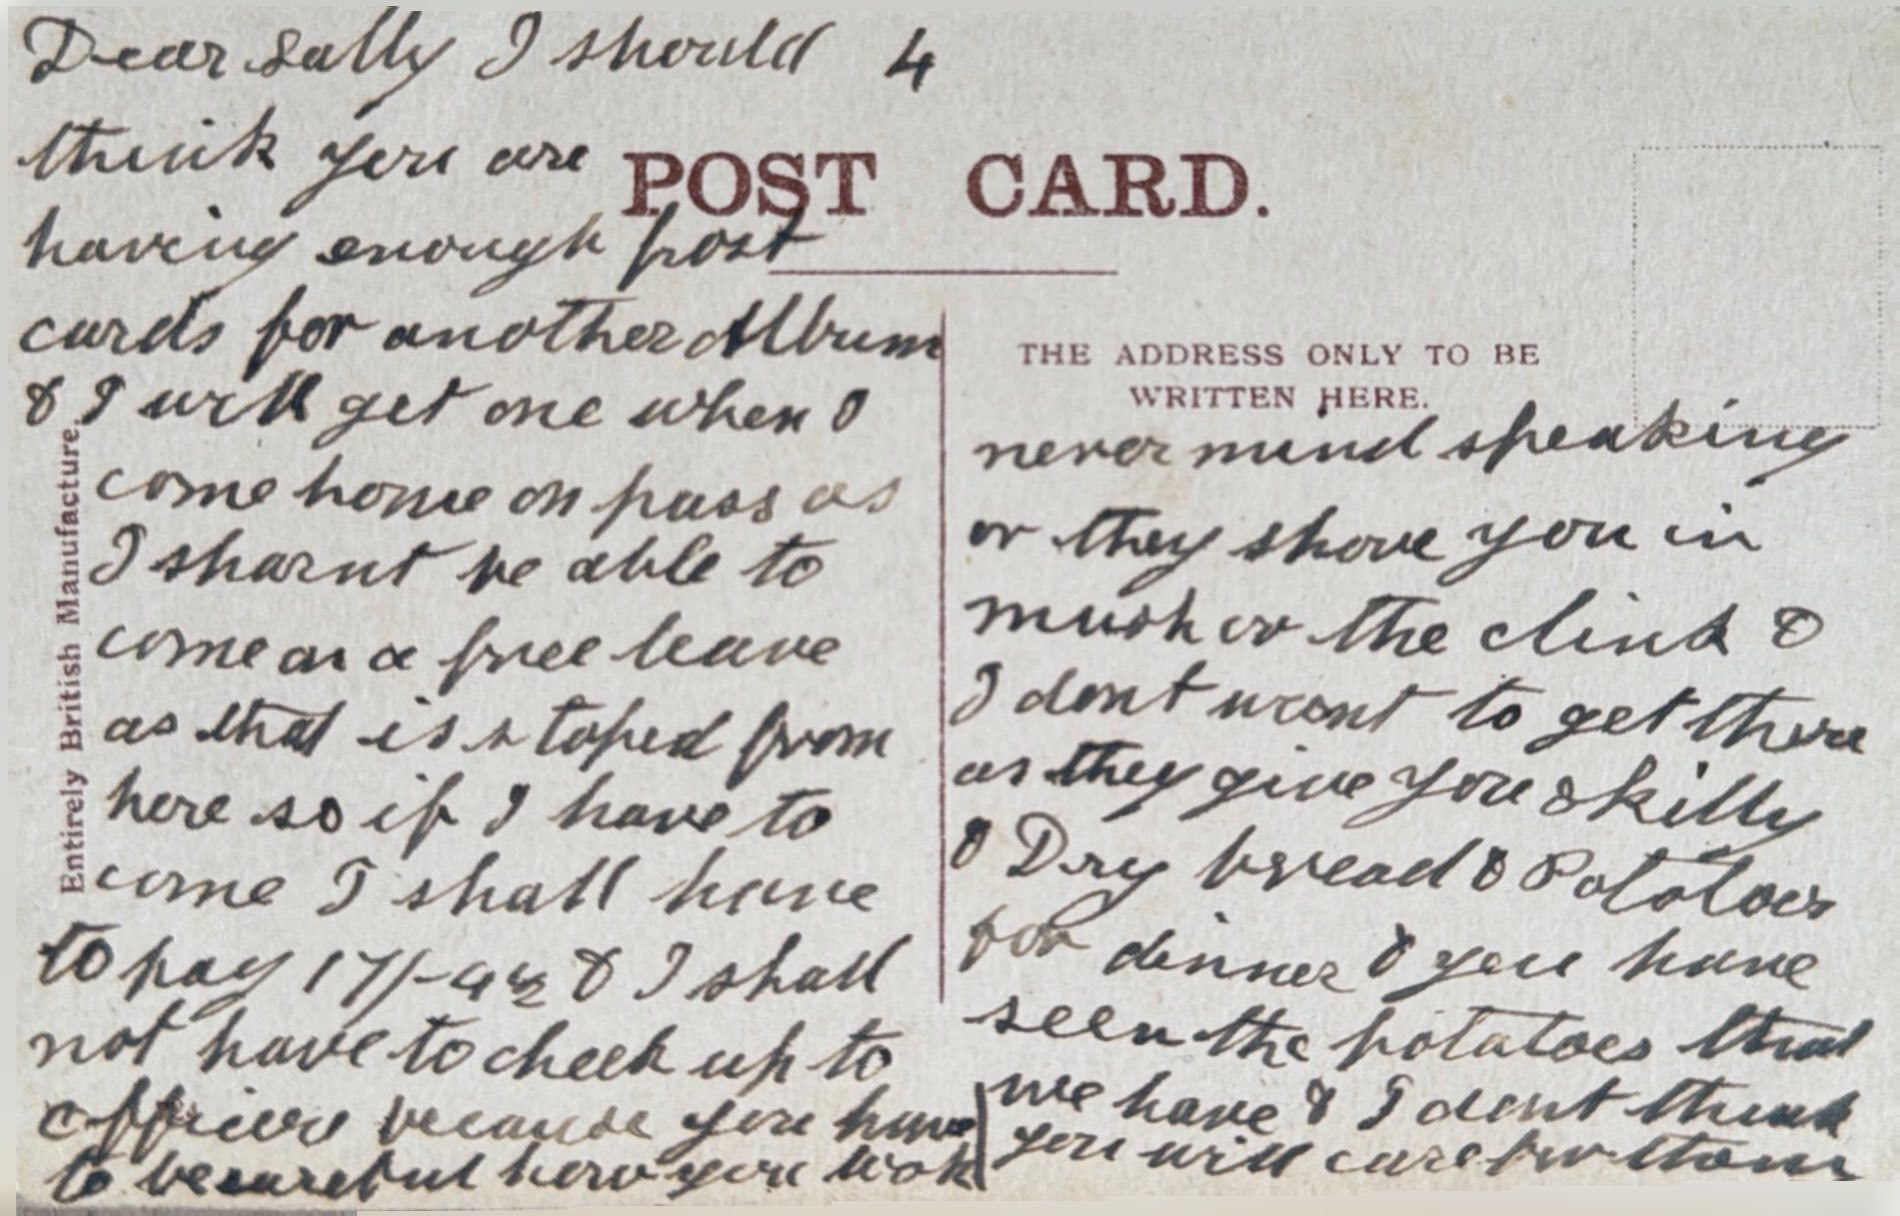 Dear Sally I should 4
think you are
POST CARD.
having enough post
cards for another Album
& I will get one when I
come home on pass as
I sharnt be able to
come on a free leave
as that is stoped from
here so if I have to
come I shall have
to pay 17/- & I shall
not have to cheek up to
officers because you have
to be careful how you look
Entirely British Manufacture.
THE ADDRESS ONLY TO BE
WRITTEN HERE.
never mind speaking
or they shove you in
mush or the clink &
I dont want to get there
as they give you skilly
& Dry bread & Potatoes
for dinner & you have
seen the potatoes that
we have & I dont think
you will care for them